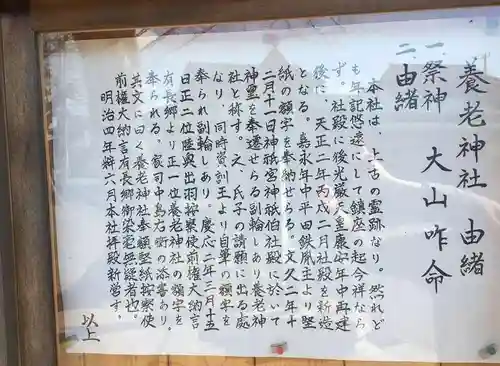 養老神社 由緒
一 祭神 大山咋命
二 由緒
本社は、上古の霊跡なり。然れど
も年記悠遠にして鎮座の起今祥なら
ず。社殿に後光厳天皇康安年中再建
後に、天正二年丙戌二月社殿を新造
となる。嘉永年中平田鉄胤主より堅
紙の額字を奉納せらる 文久二年十
二月十一日神祇宮神祇伯社殿に於いて
神璽を奉遷せらる副輪しあり養老神
社と称す。之、氏子の請願に出る處
なり、同時資訓王より自筆の額字を
奉られ副輪しあり。慶応二年三月十五
日正二位陸奥出羽按察使前権大納言
有長郷より正一位養老神社の額字を
奉られる、家司中島右衛の添書あり。
其文に曰く養老神社奉額堅紙按察使
前権大納言有長郷御染毫無疑者也。
明治四年辨六月本社拝殿新営す。
以上